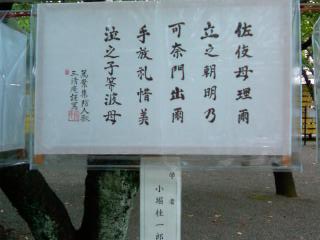 佐伎母理爾
立之朝明乃
可奈門出爾
手放礼惜美
泣之子等波母
万葉集防人歌
学者
小堀桂一郎